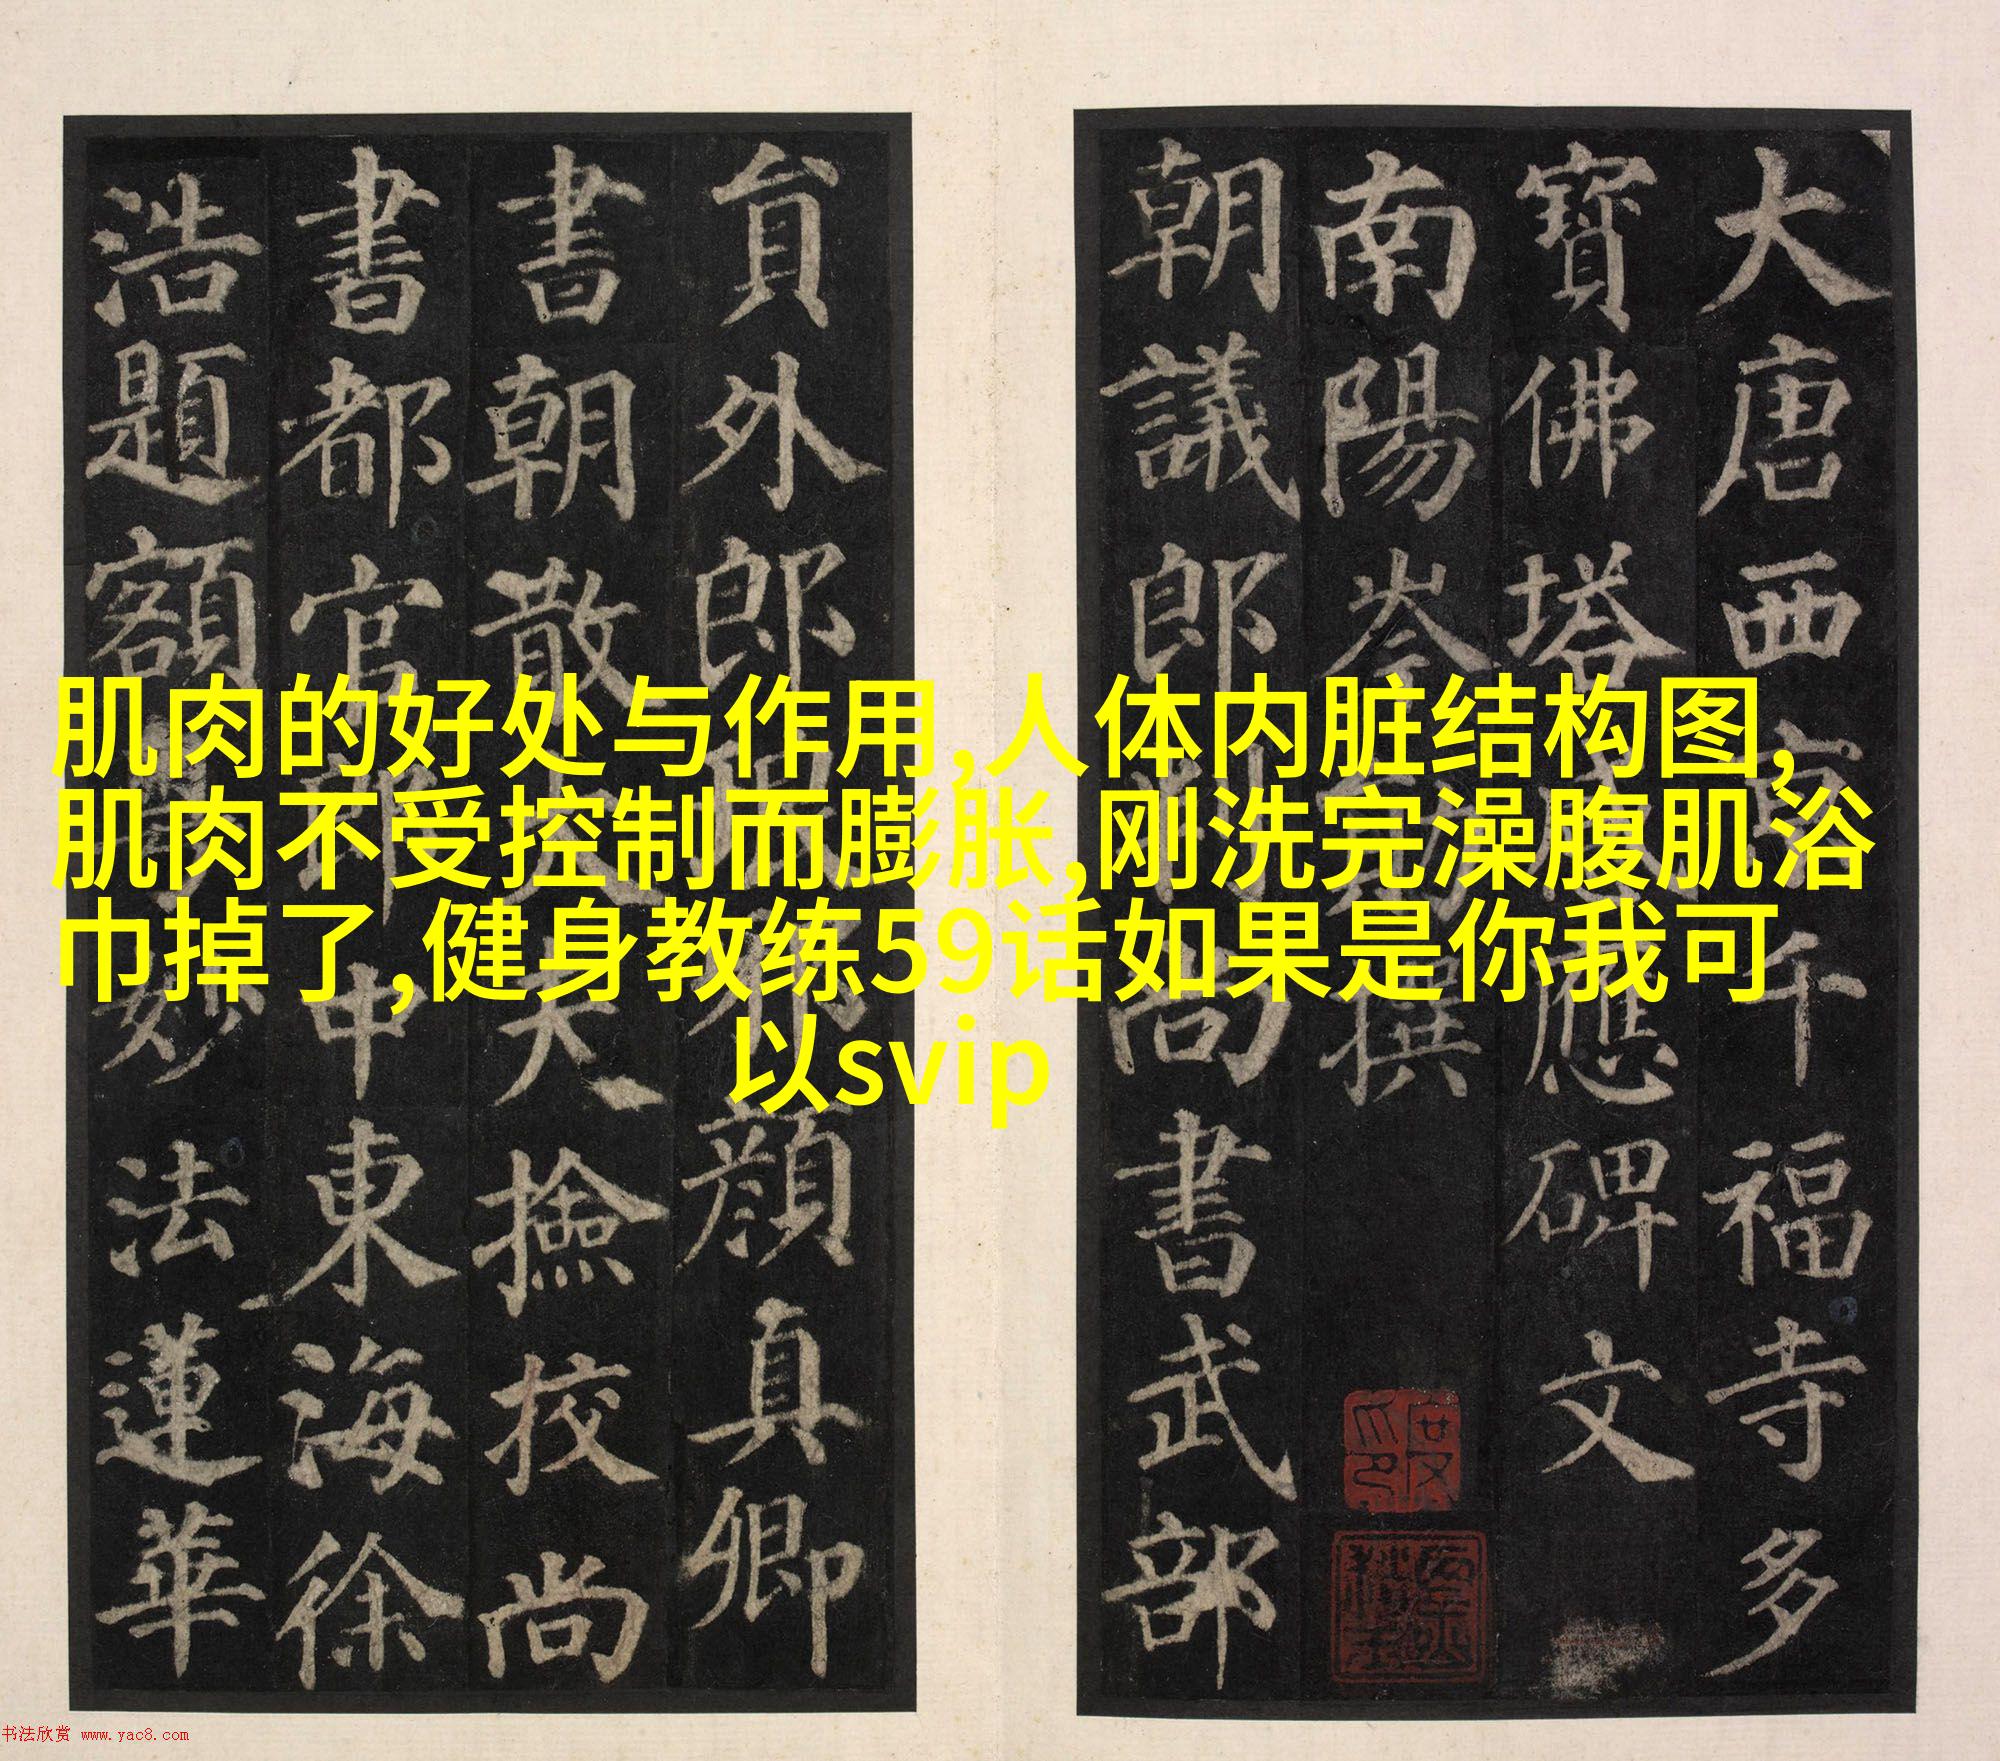 大唐西京千福寺多
寶佛塔感應碑文
南陽岑勛撰
朝議郎判尚書武部
貟外郎琅邪顏真卿
書朝散大夫撿挍尚
書都官郎中東海徐
浩題額妙法蓮華
肌肉的好处与作用,人体内脏结构图,
肌肉不受控制而膨胀,刚洗完澡腹肌浴
巾掉了,健身教练59话如果是你我可
以svip
书法欣赏 www.yac8.com